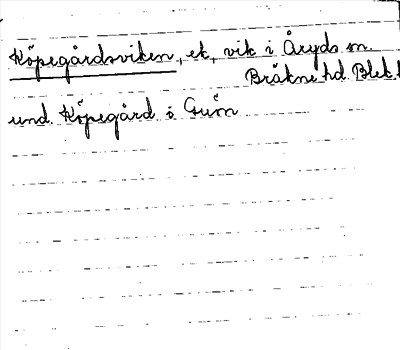 Köpegårdsviken, ek, vik i Åryds sn.
Bräkne hd. Blek.
und. Köpegård i